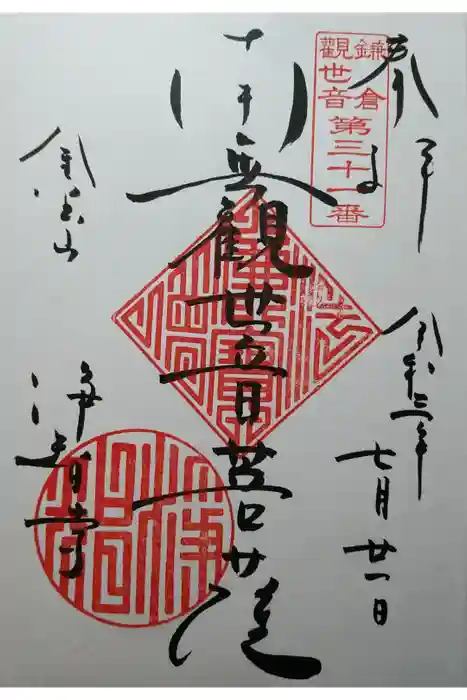 奉拝
鎌倉
觀世音
第三十一番
令和三年
七月廿一日
南無觀世音菩薩
金宝山
浄智寺